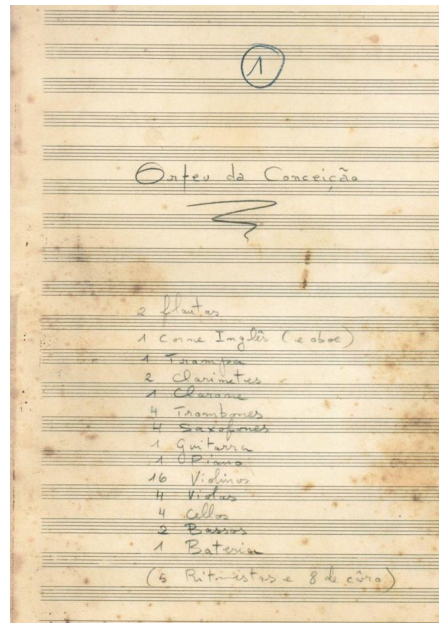 1
Orfeu da Conceição
2 flautas
1 Corne Inglês (e oboe)
1 Trompa
2 Clarinetes
1 Clarone
4 Trombones
4 Saxofones
1 Guitarra
1 Piano
16 Violinos
4 Violas
4 Cellos
2 Bassos
1 Bateria
(5 Ritmistas e 8 de côro)